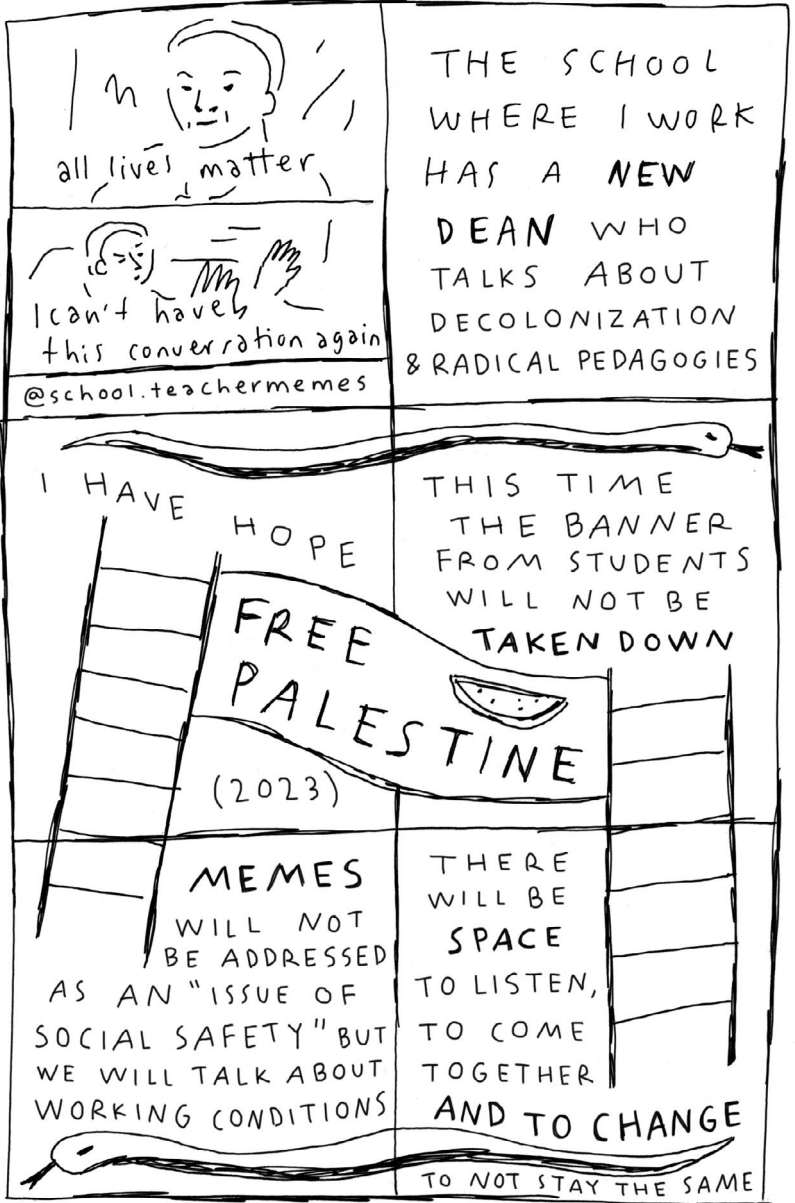 all lives matter
I can't have
this conversation again
@school.teachermemes
THE SCHOOL
WHERE I WORK
HAS A NEW
DEAN WHO
TALKS ABOUT
DECOLONIZATION
& RADICAL PEDAGOGIES
I HAVE HOPE
THIS TIME
THE BANNER
FROM STUDENTS
WILL NOT BE
TAKEN DOWN
FREE
PALESTINE
(2023)
MEMES
WILL NOT
BE ADDRESSED
AS AN "ISSUE OF
SOCIAL SAFETY" BUT
WE WILL TALK ABOUT
WORKING CONDITIONS
THERE
WILL BE
SPACE
TO LISTEN,
TO COME
TOGETHER
AND TO CHANGE
TO NOT STAY THE SAME